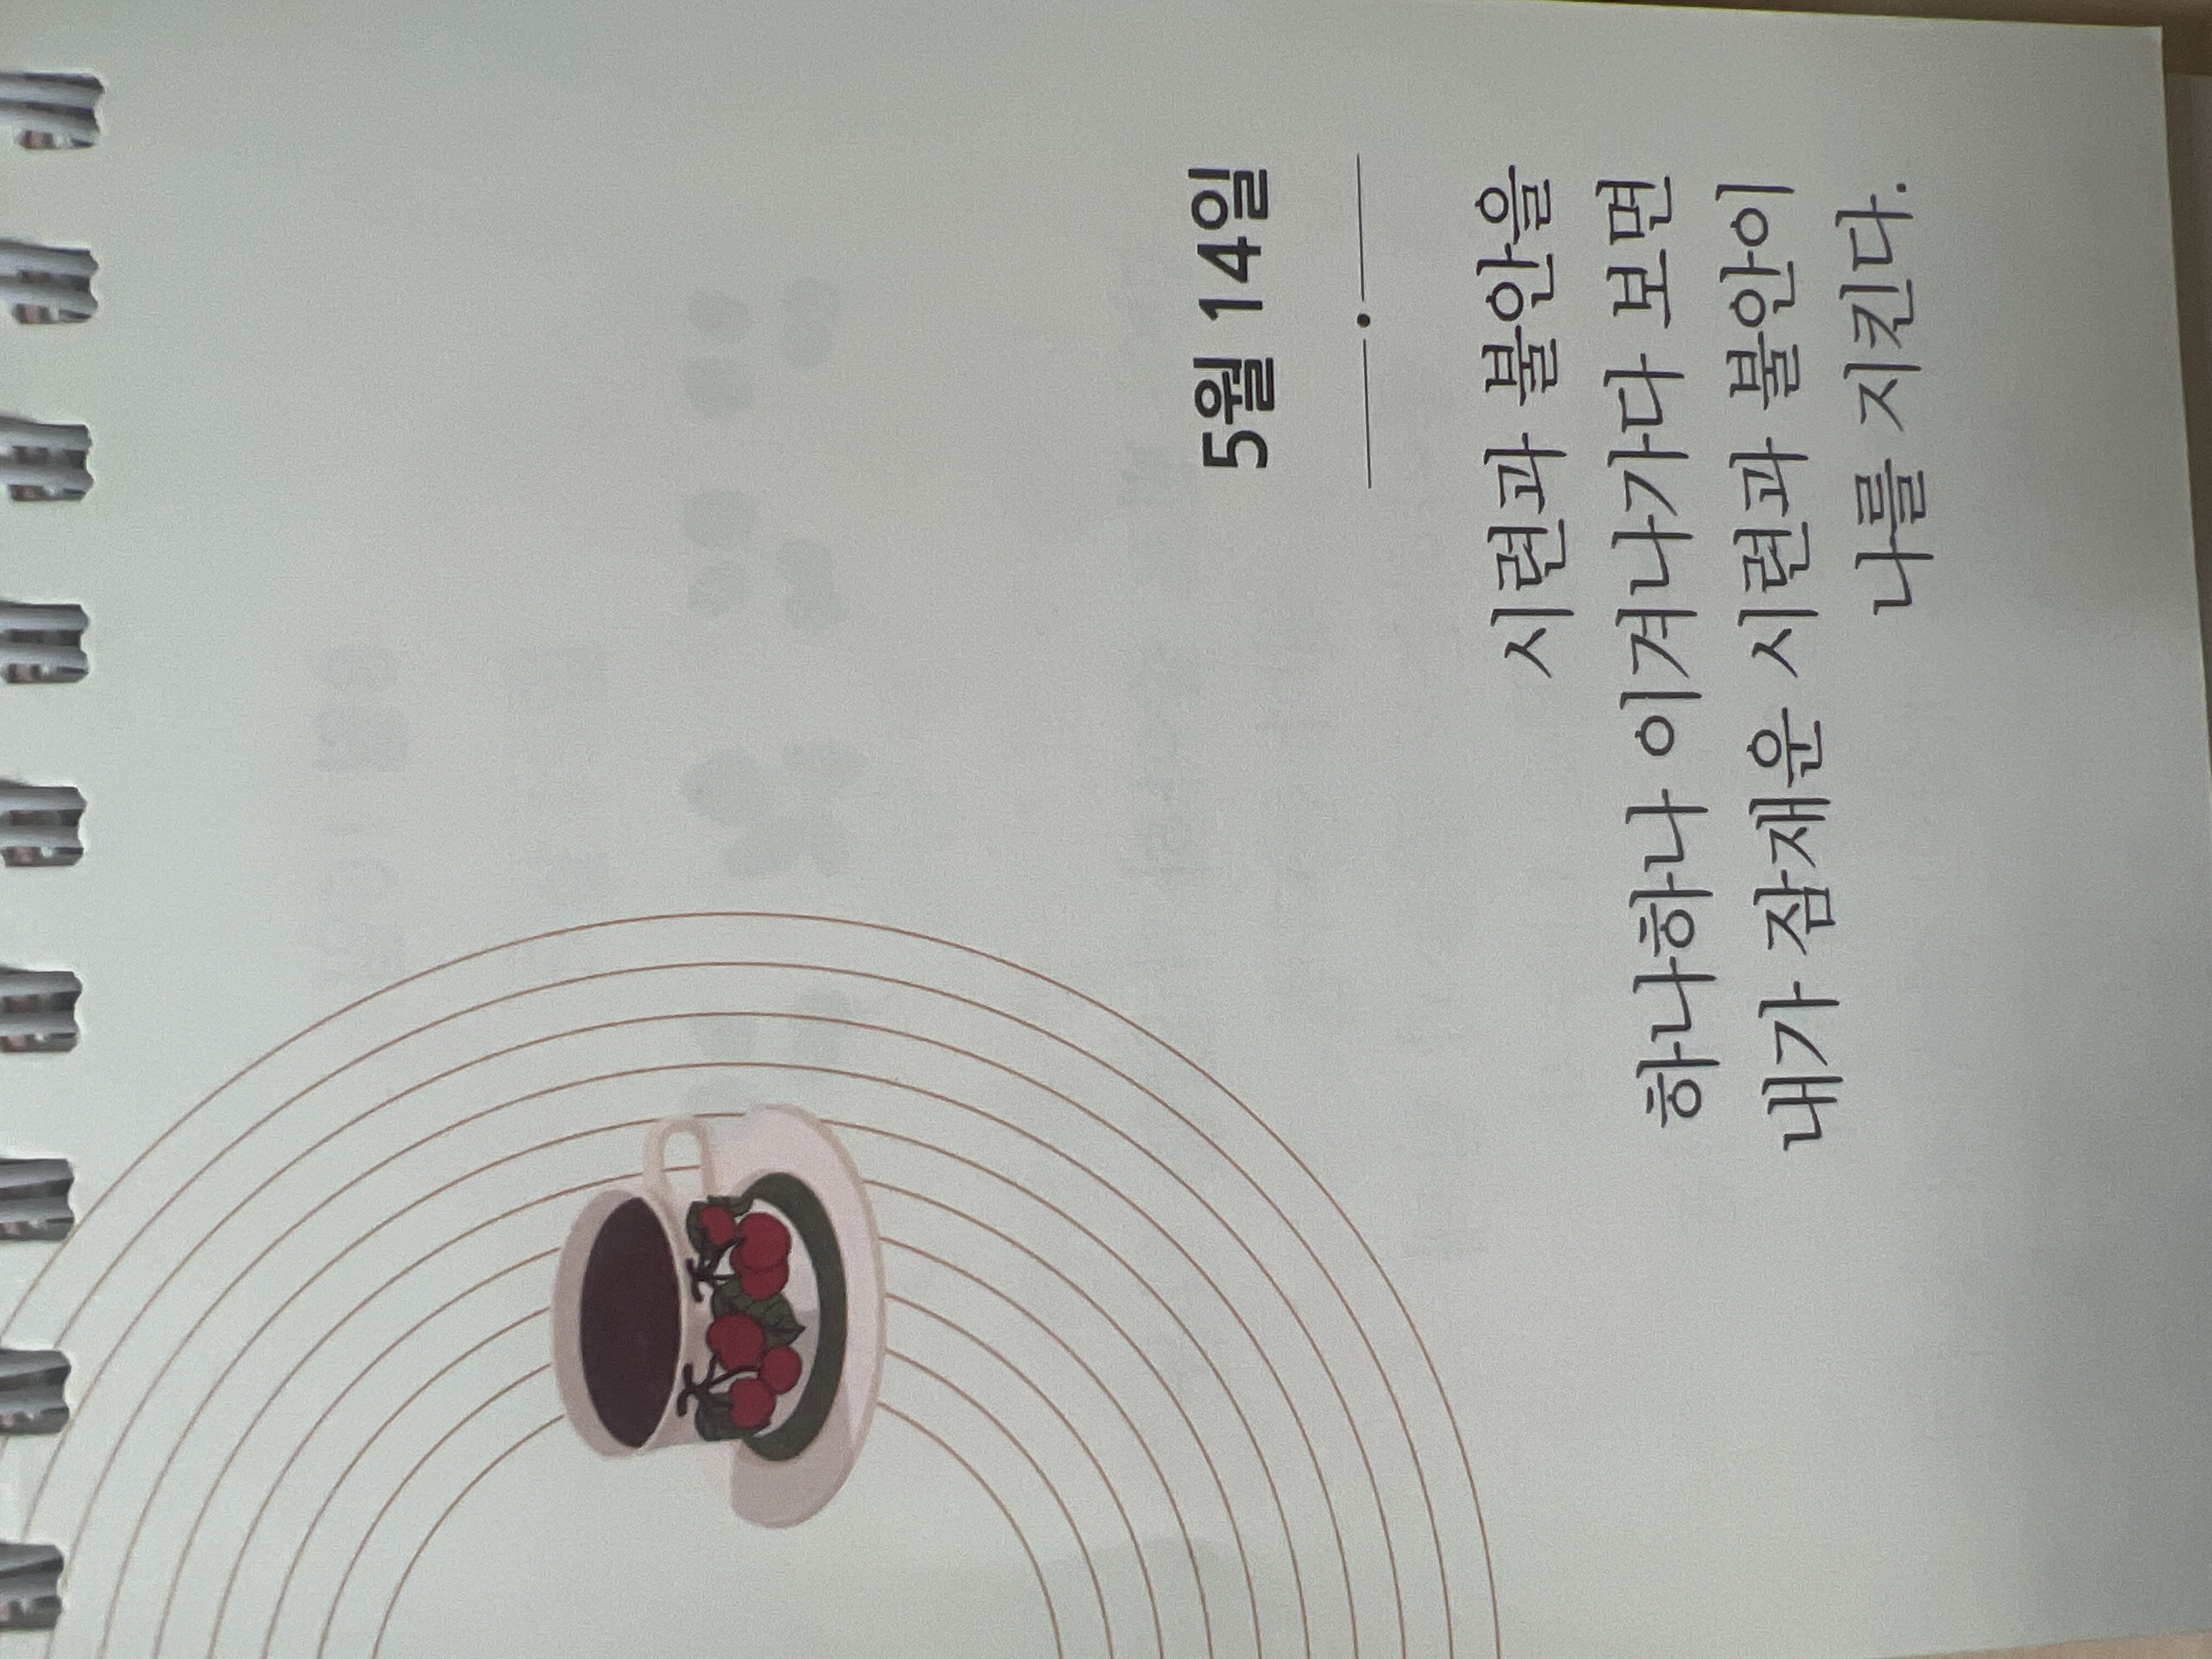 5월 14일
시련과 불안을
하나하나 이겨나가다 보면
내가 잠재운 시련과 불안이
나를 지킨다.